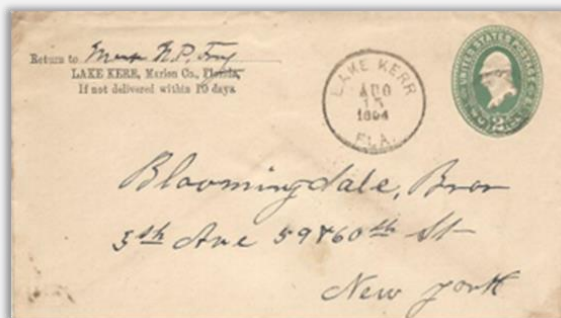 Return to Mrs N. P. Foy
LAKE KERR, Marion Co., Florida,
If not delivered within 10 days.
LAKE KERR
AUG
15
1894
FLA.
UNITED STATES POSTAGE
2
Bloomingdale, Bros
5th Ave 59&60th St
New York